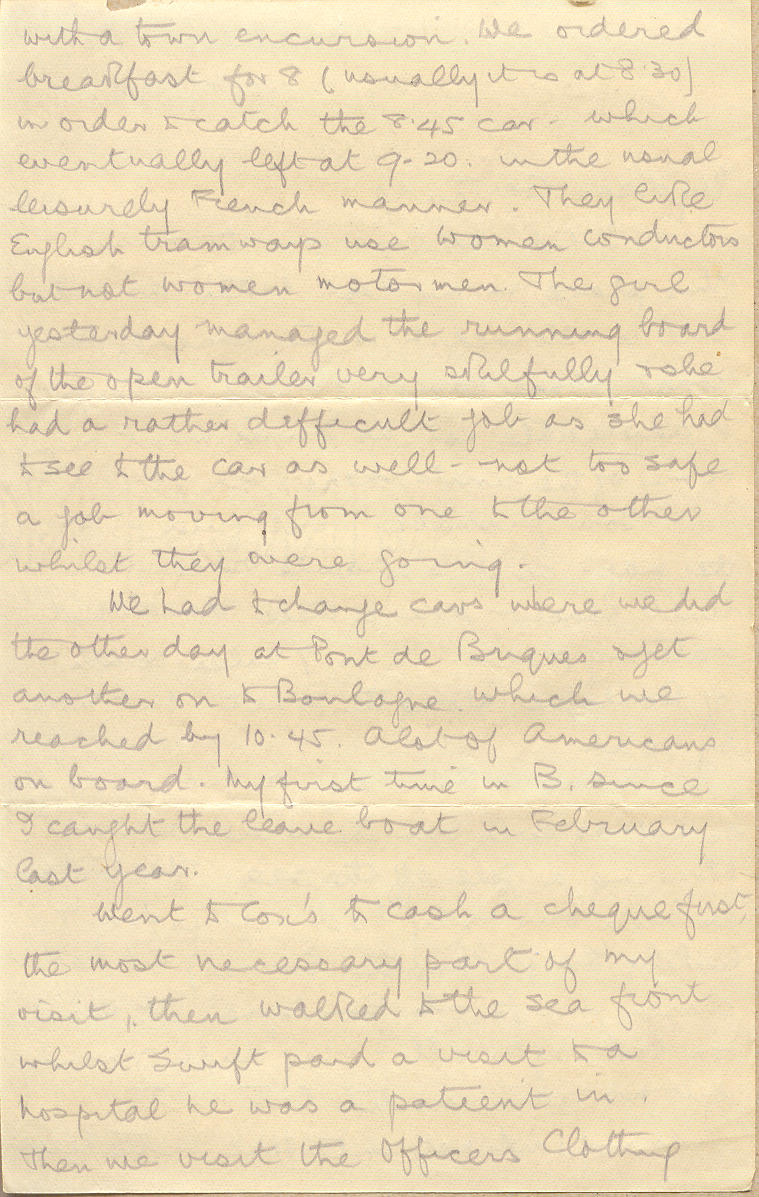 with a town excursion. We ordered
breakfast for 8 (usually it is at 8.30)
in order to catch the 8.45 car - which
eventually left at 9-20. in the usual
leisurely French manner. They like
English tramways use women conductors
but not women motormen. The girl
yesterday managed the running board
of the open trailer very skilfully & she
had a rather difficult job as she had
to see to the car as well - not too safe
a job moving from one to the other
whilst they were going.
We had to change cars where we did
the other day at Pont de Briques & yet
another on to Boulogne which we
reached by 10.45. A lot of Americans
on board. My first time in B. since
I caught the leave boat in February
last year.
Went to Cox's to cash a cheque first,
the most necessary part of my
visit, then walked to the sea front
whilst Swift paid a visit to a
hospital he was a patient in.
Then we visit the Officers Clothing